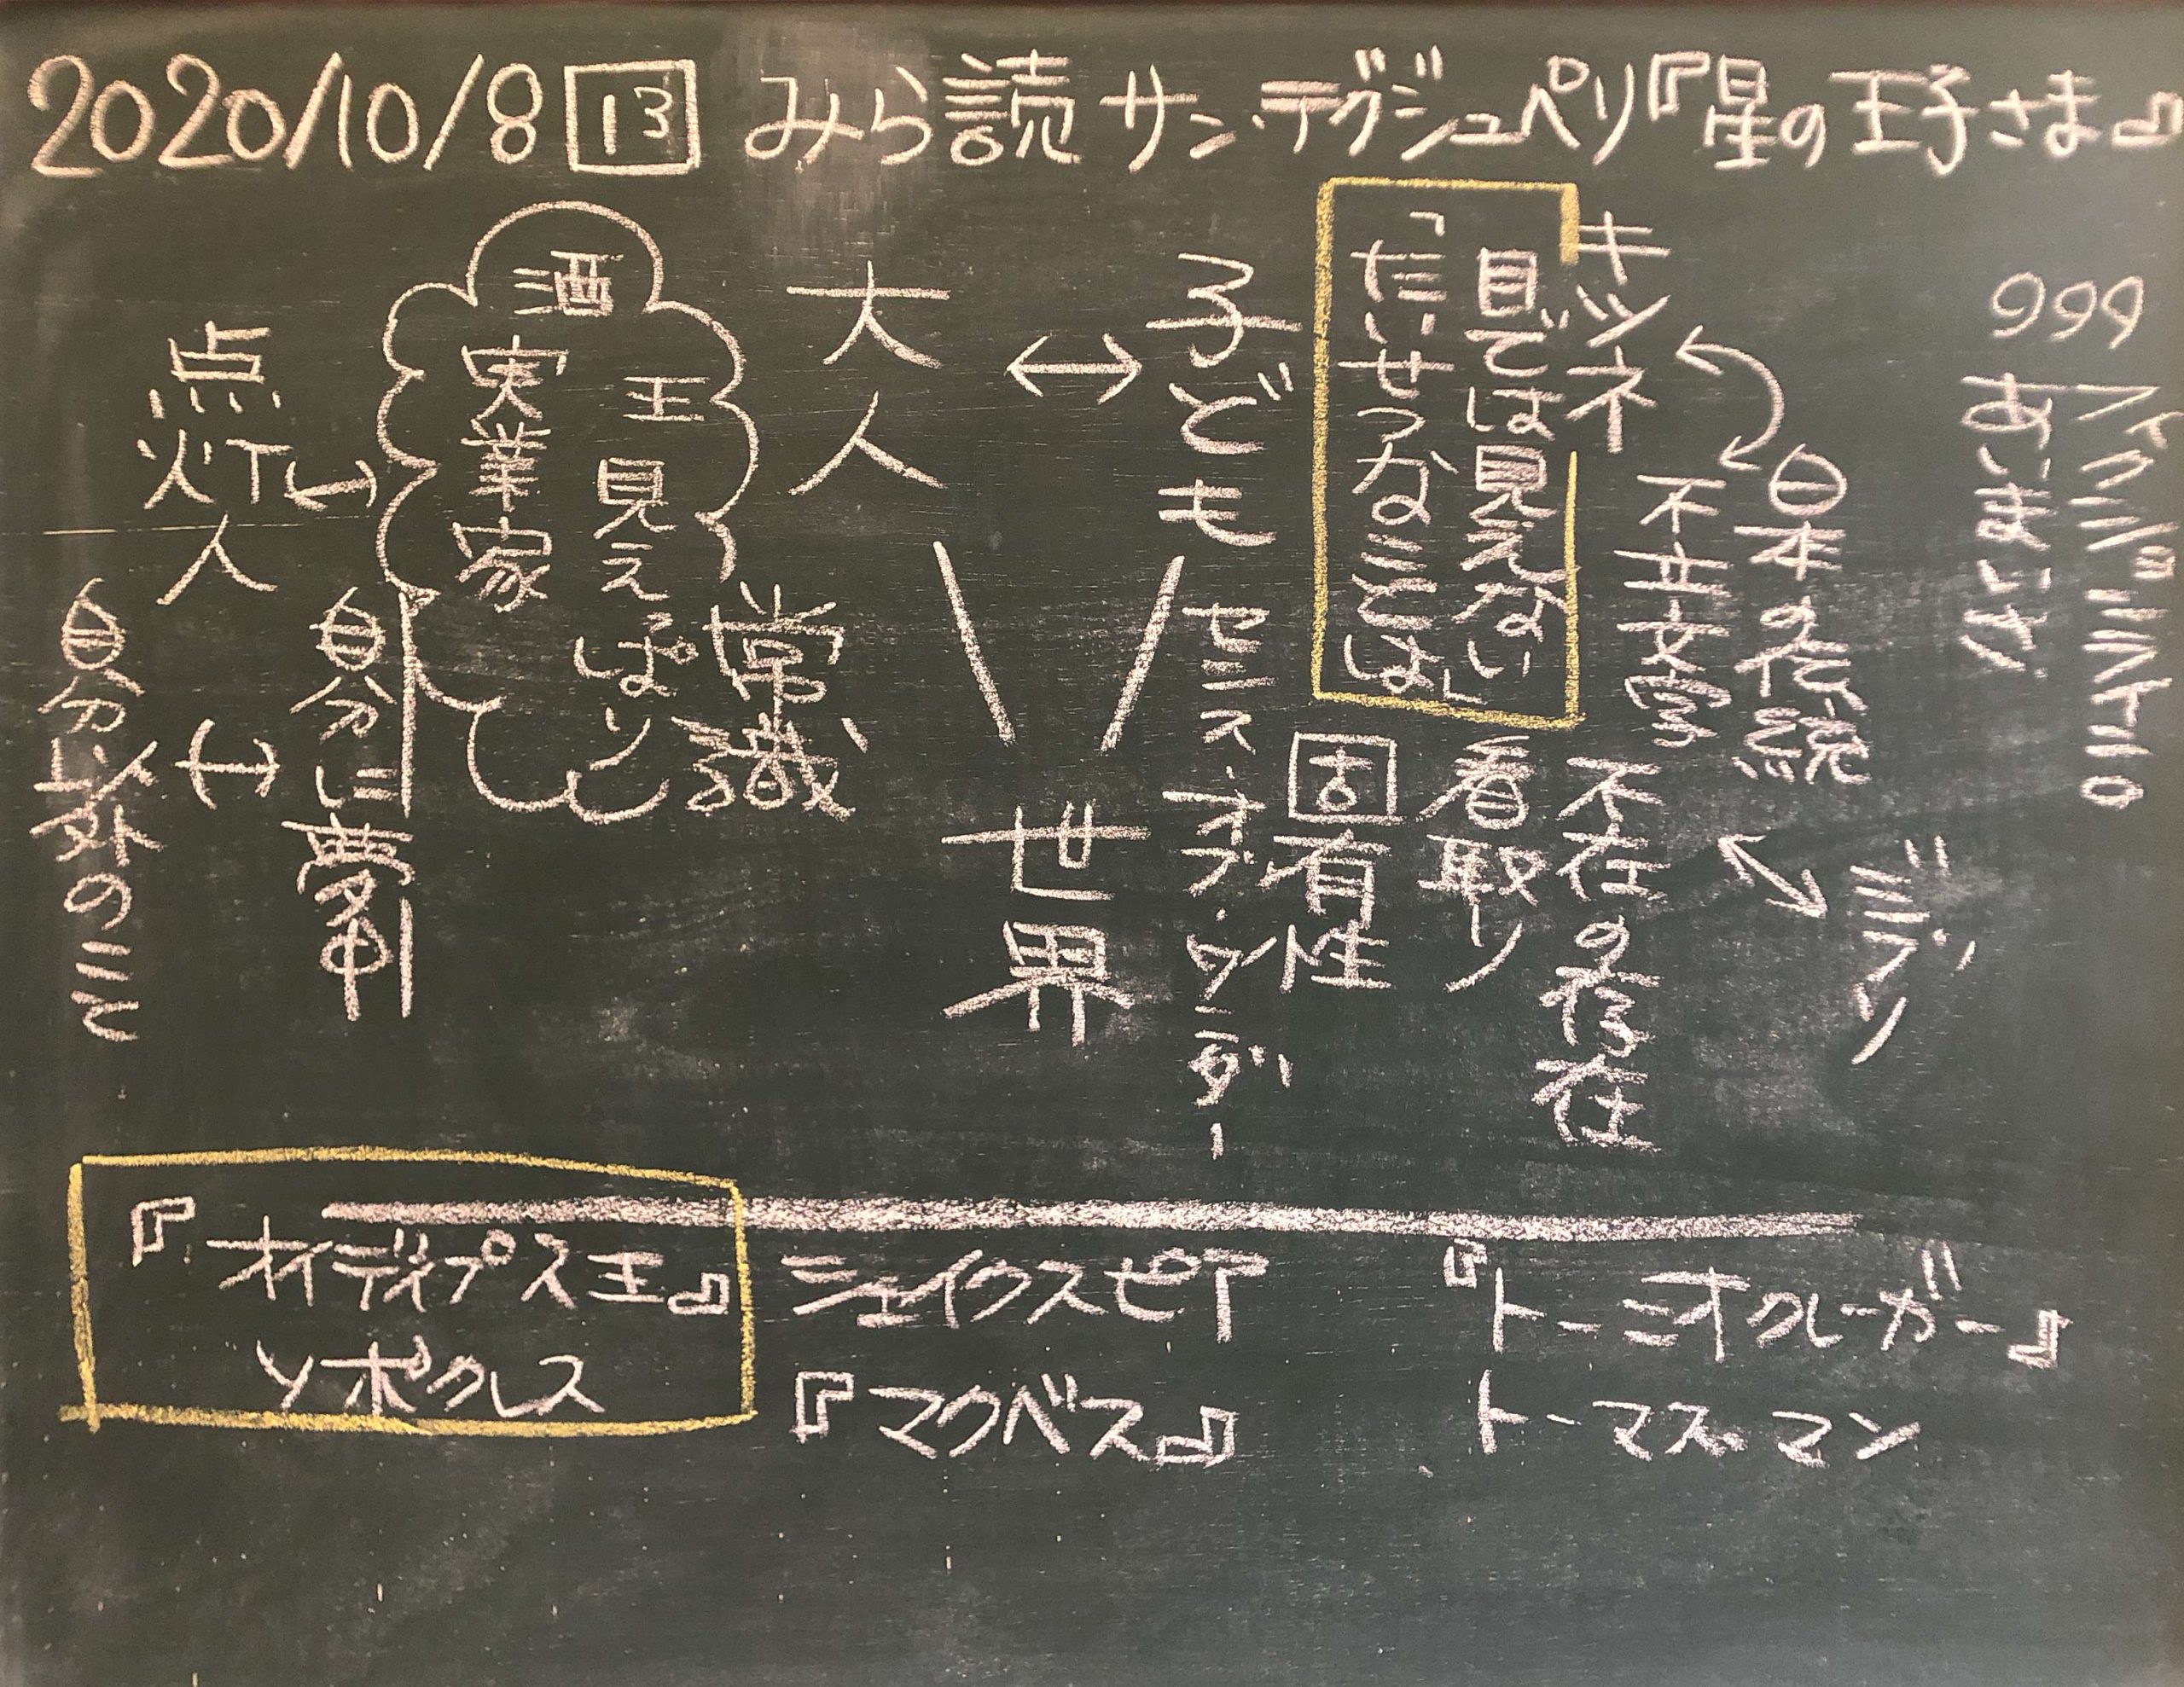 2020/10/8 13 みら読 サン・テグジュペリ『星の王子さま』
999
あいまいさ
ジブリ
日本の伝統
不立文字
キツネ
不在の存在
目では見えない
「たいせつなことは」
看取り
固有性
子ども
センス・オブ・ワンダー
↔
世界
大人
常識
王 見えぱり
酒
実業家
自分に夢中
↔
点灯人
↔
自分以外のこと
『オイディプス王』
ソポクレス
シェイクスピア
『マクベス』
『トーニオクレーガー』
トーマス・マン